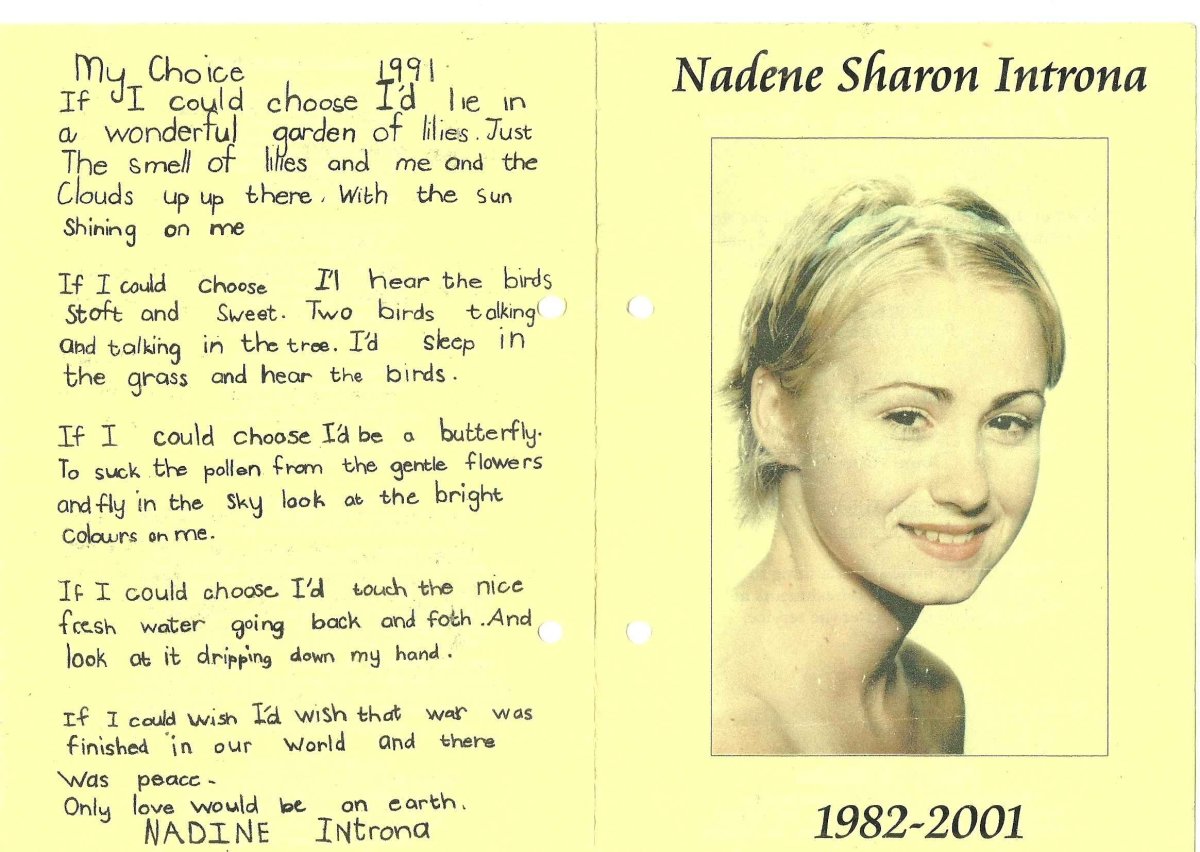 My Choice 1991
If I could choose I'd lie in
a wonderful garden of lilies. Just
The smell of lilies and me and the
Clouds up up there. With the sun
Shining on me
If I could choose I'l hear the birds
Stoft and Sweet. Two birds talking
and talking in the tree. I'd sleep in
the grass and hear the birds.
If I could choose I'd be a butterfly.
To suck the pollen from the gentle flowers
and fly in the Sky look at the bright
Colours on me.
If I could choose I'd touch the nice
fresh water going back and foth. And
look at it dripping down my hand.
If I could wish I'd wish that war was
finished in our world and there
Was peace-
Only love would be on earth.
NADINE INtrona
Nadene Sharon Introna
1982-2001